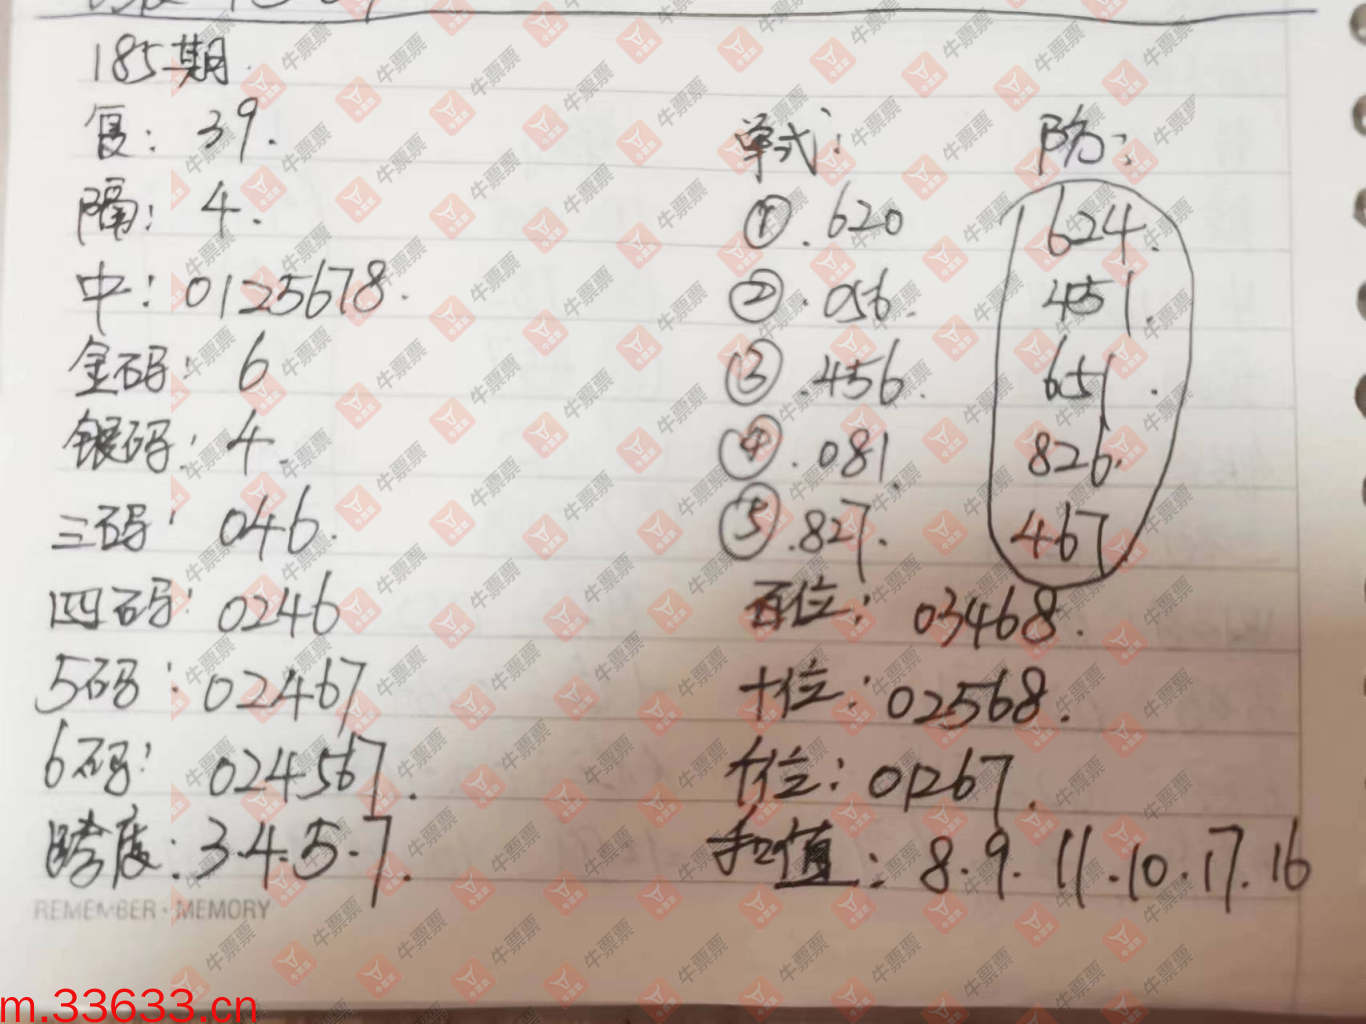 185期.
复: 39.
隔: 4.
中: 0125678.
金码: 6
银码: 4.
三码: 046.
四码: 0246
5码: 02467
6码: 024567.
跨度: 3.4.5.7.
REMEMBER · MEMORY
单式:
① .620
② .056.
③ .456.
④ .081.
⑤ .827.
防:
624.
451.
651.
826.
467
百位: 03468.
十位: 02568.
个位: 01267.
和值: 8.9. 11.10.17.16
牛票票
m.33633.cn